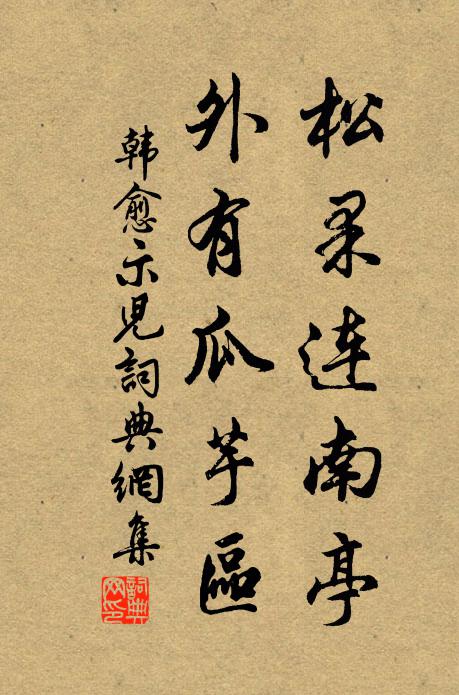 松果連南亭
外有瓜芋區
韓愈示兒詞典網集
詞典網印